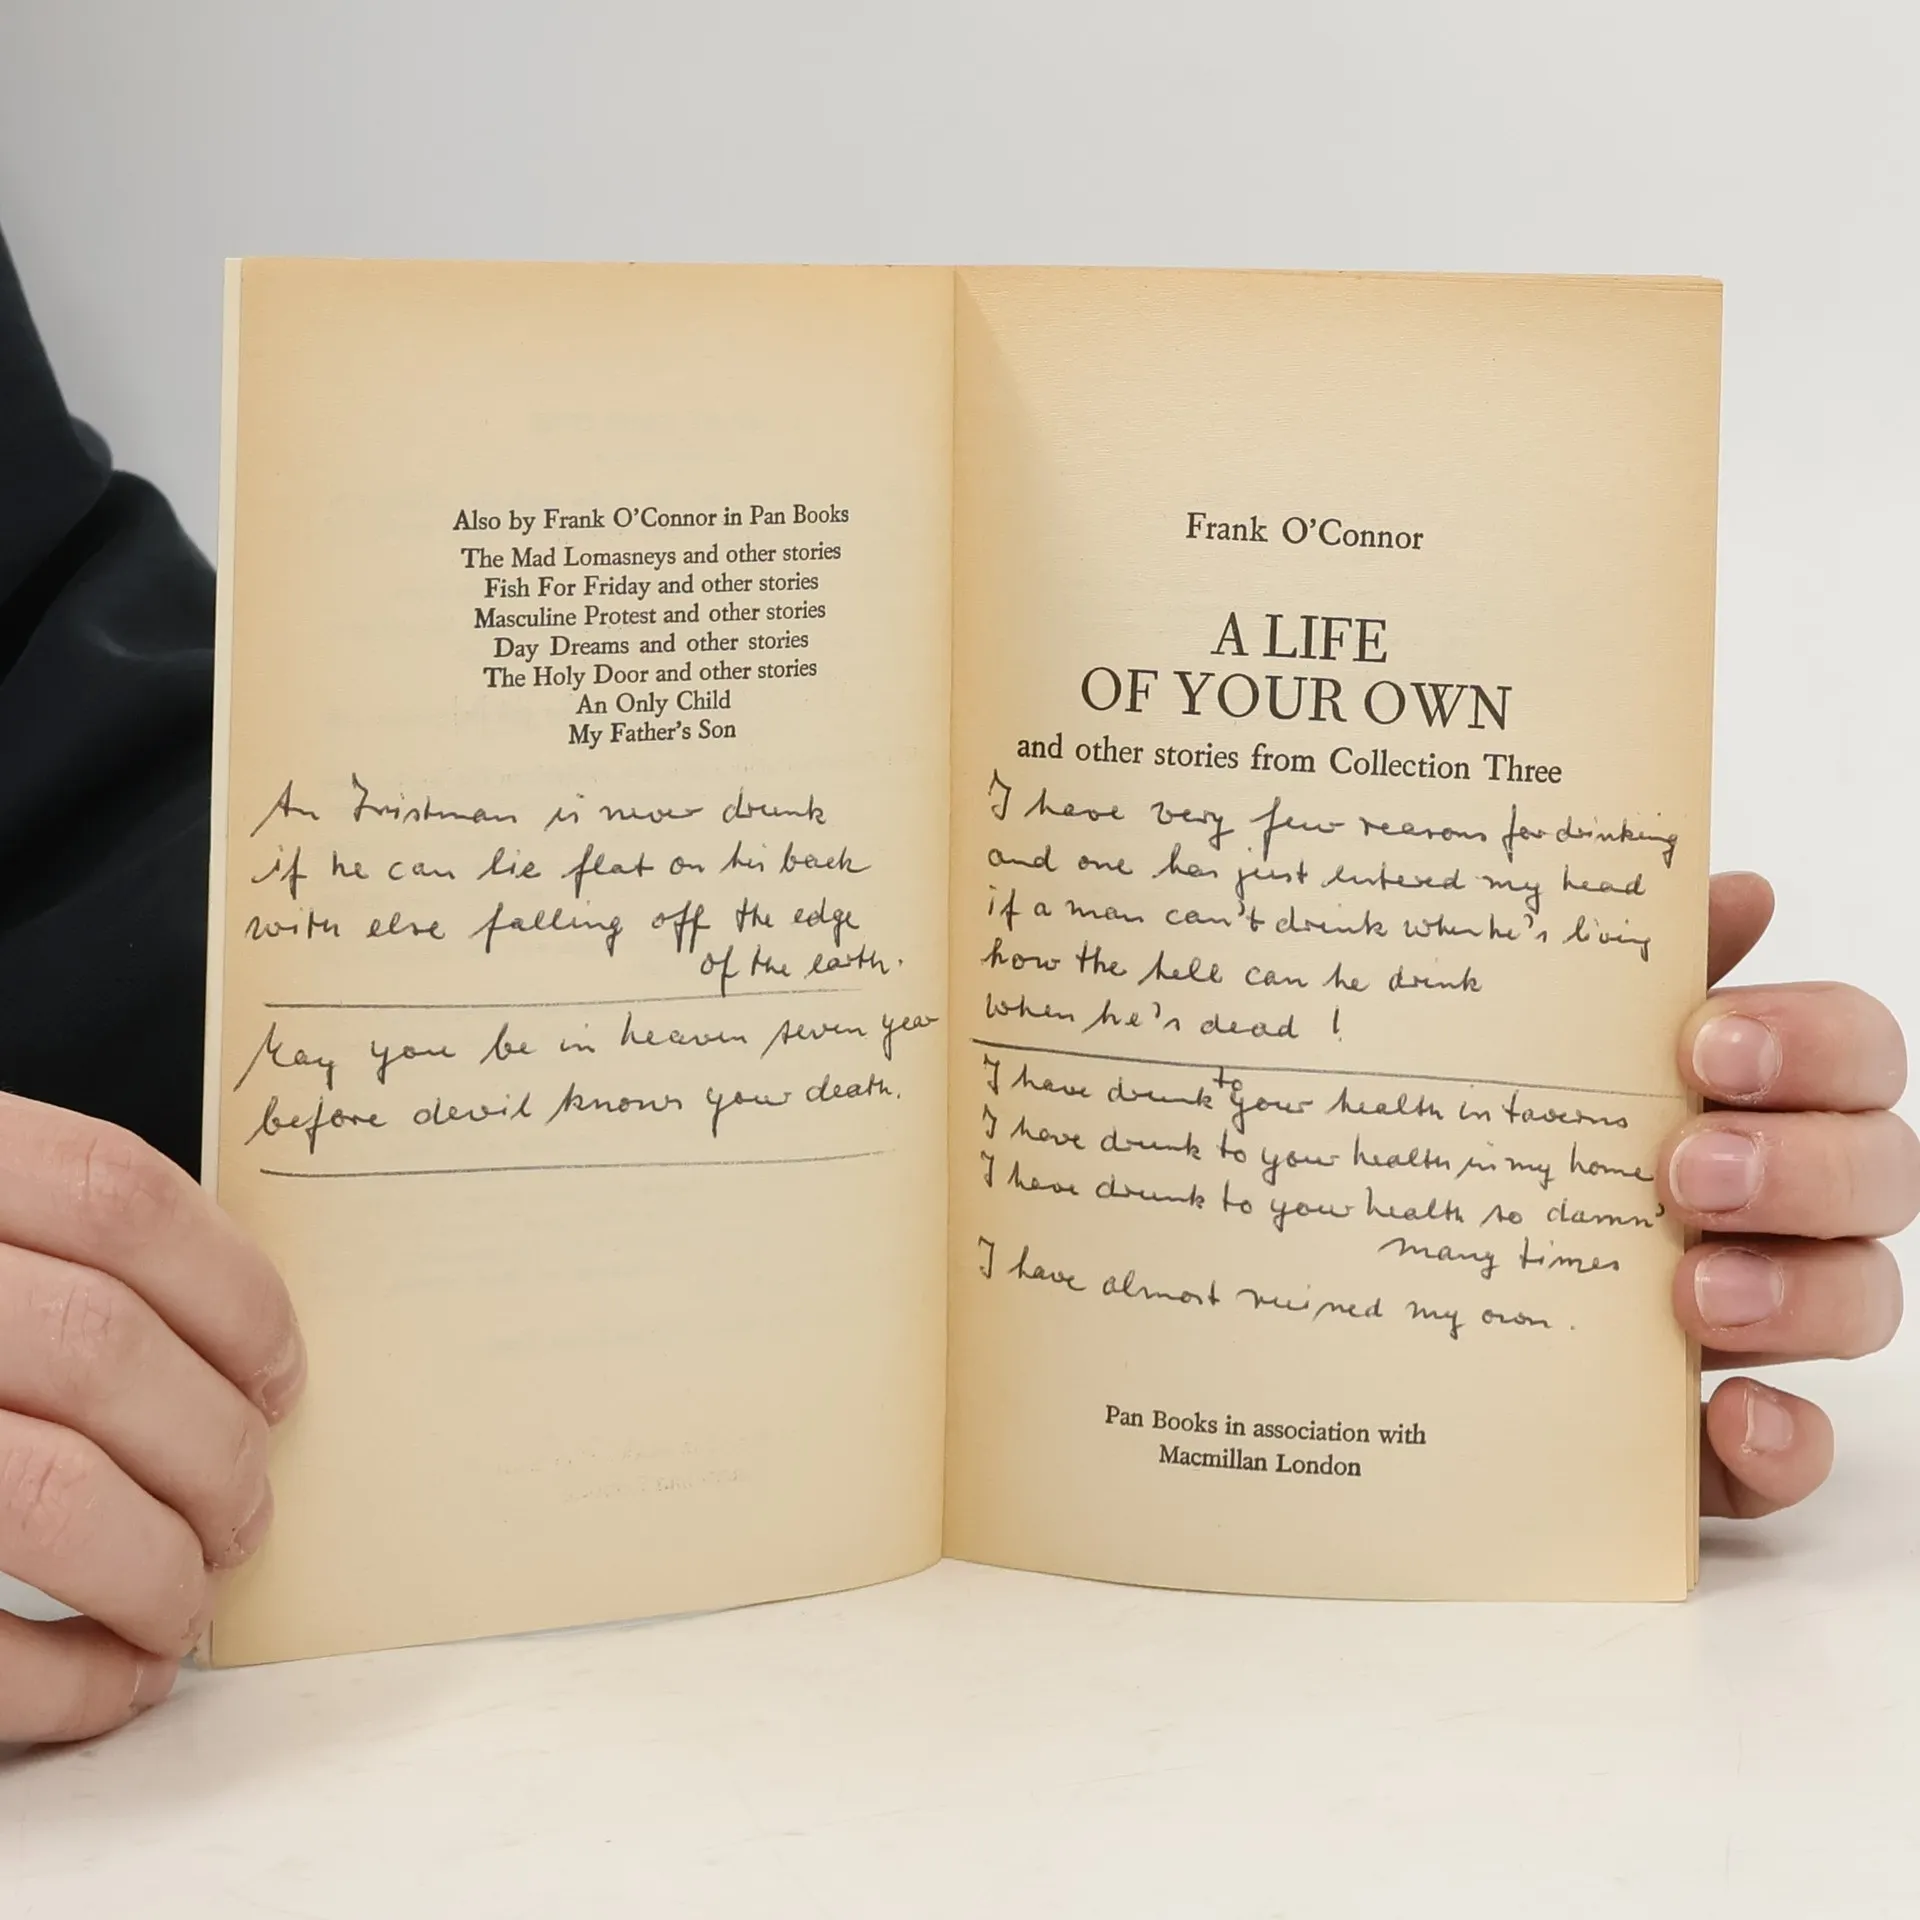 Also by Frank O'Connor in Pan Books
The Mad Lomasneys and other stories
Fish For Friday and other stories
Masculine Protest and other stories
Day Dreams and other stories
The Holy Door and other stories
An Only Child
My Father's Son
An Irishman is never drunk
if he can lie flat on his back
with else falling off the edge
of the earth.
May you be in heaven seven year
before devil knows your death.
Frank O'Connor
A LIFE
OF YOUR OWN
and other stories from Collection Three
I have very few reasons for drinking
and one has just entered my head
if a man can't drink when he's living
how the hell can he drink
when he's dead !
I have drunk to your health in taverns
I have drunk to your health in my home
I have drunk to your health so damn'
many times
I have almost ruined my own.
Pan Books in association with
Macmillan London